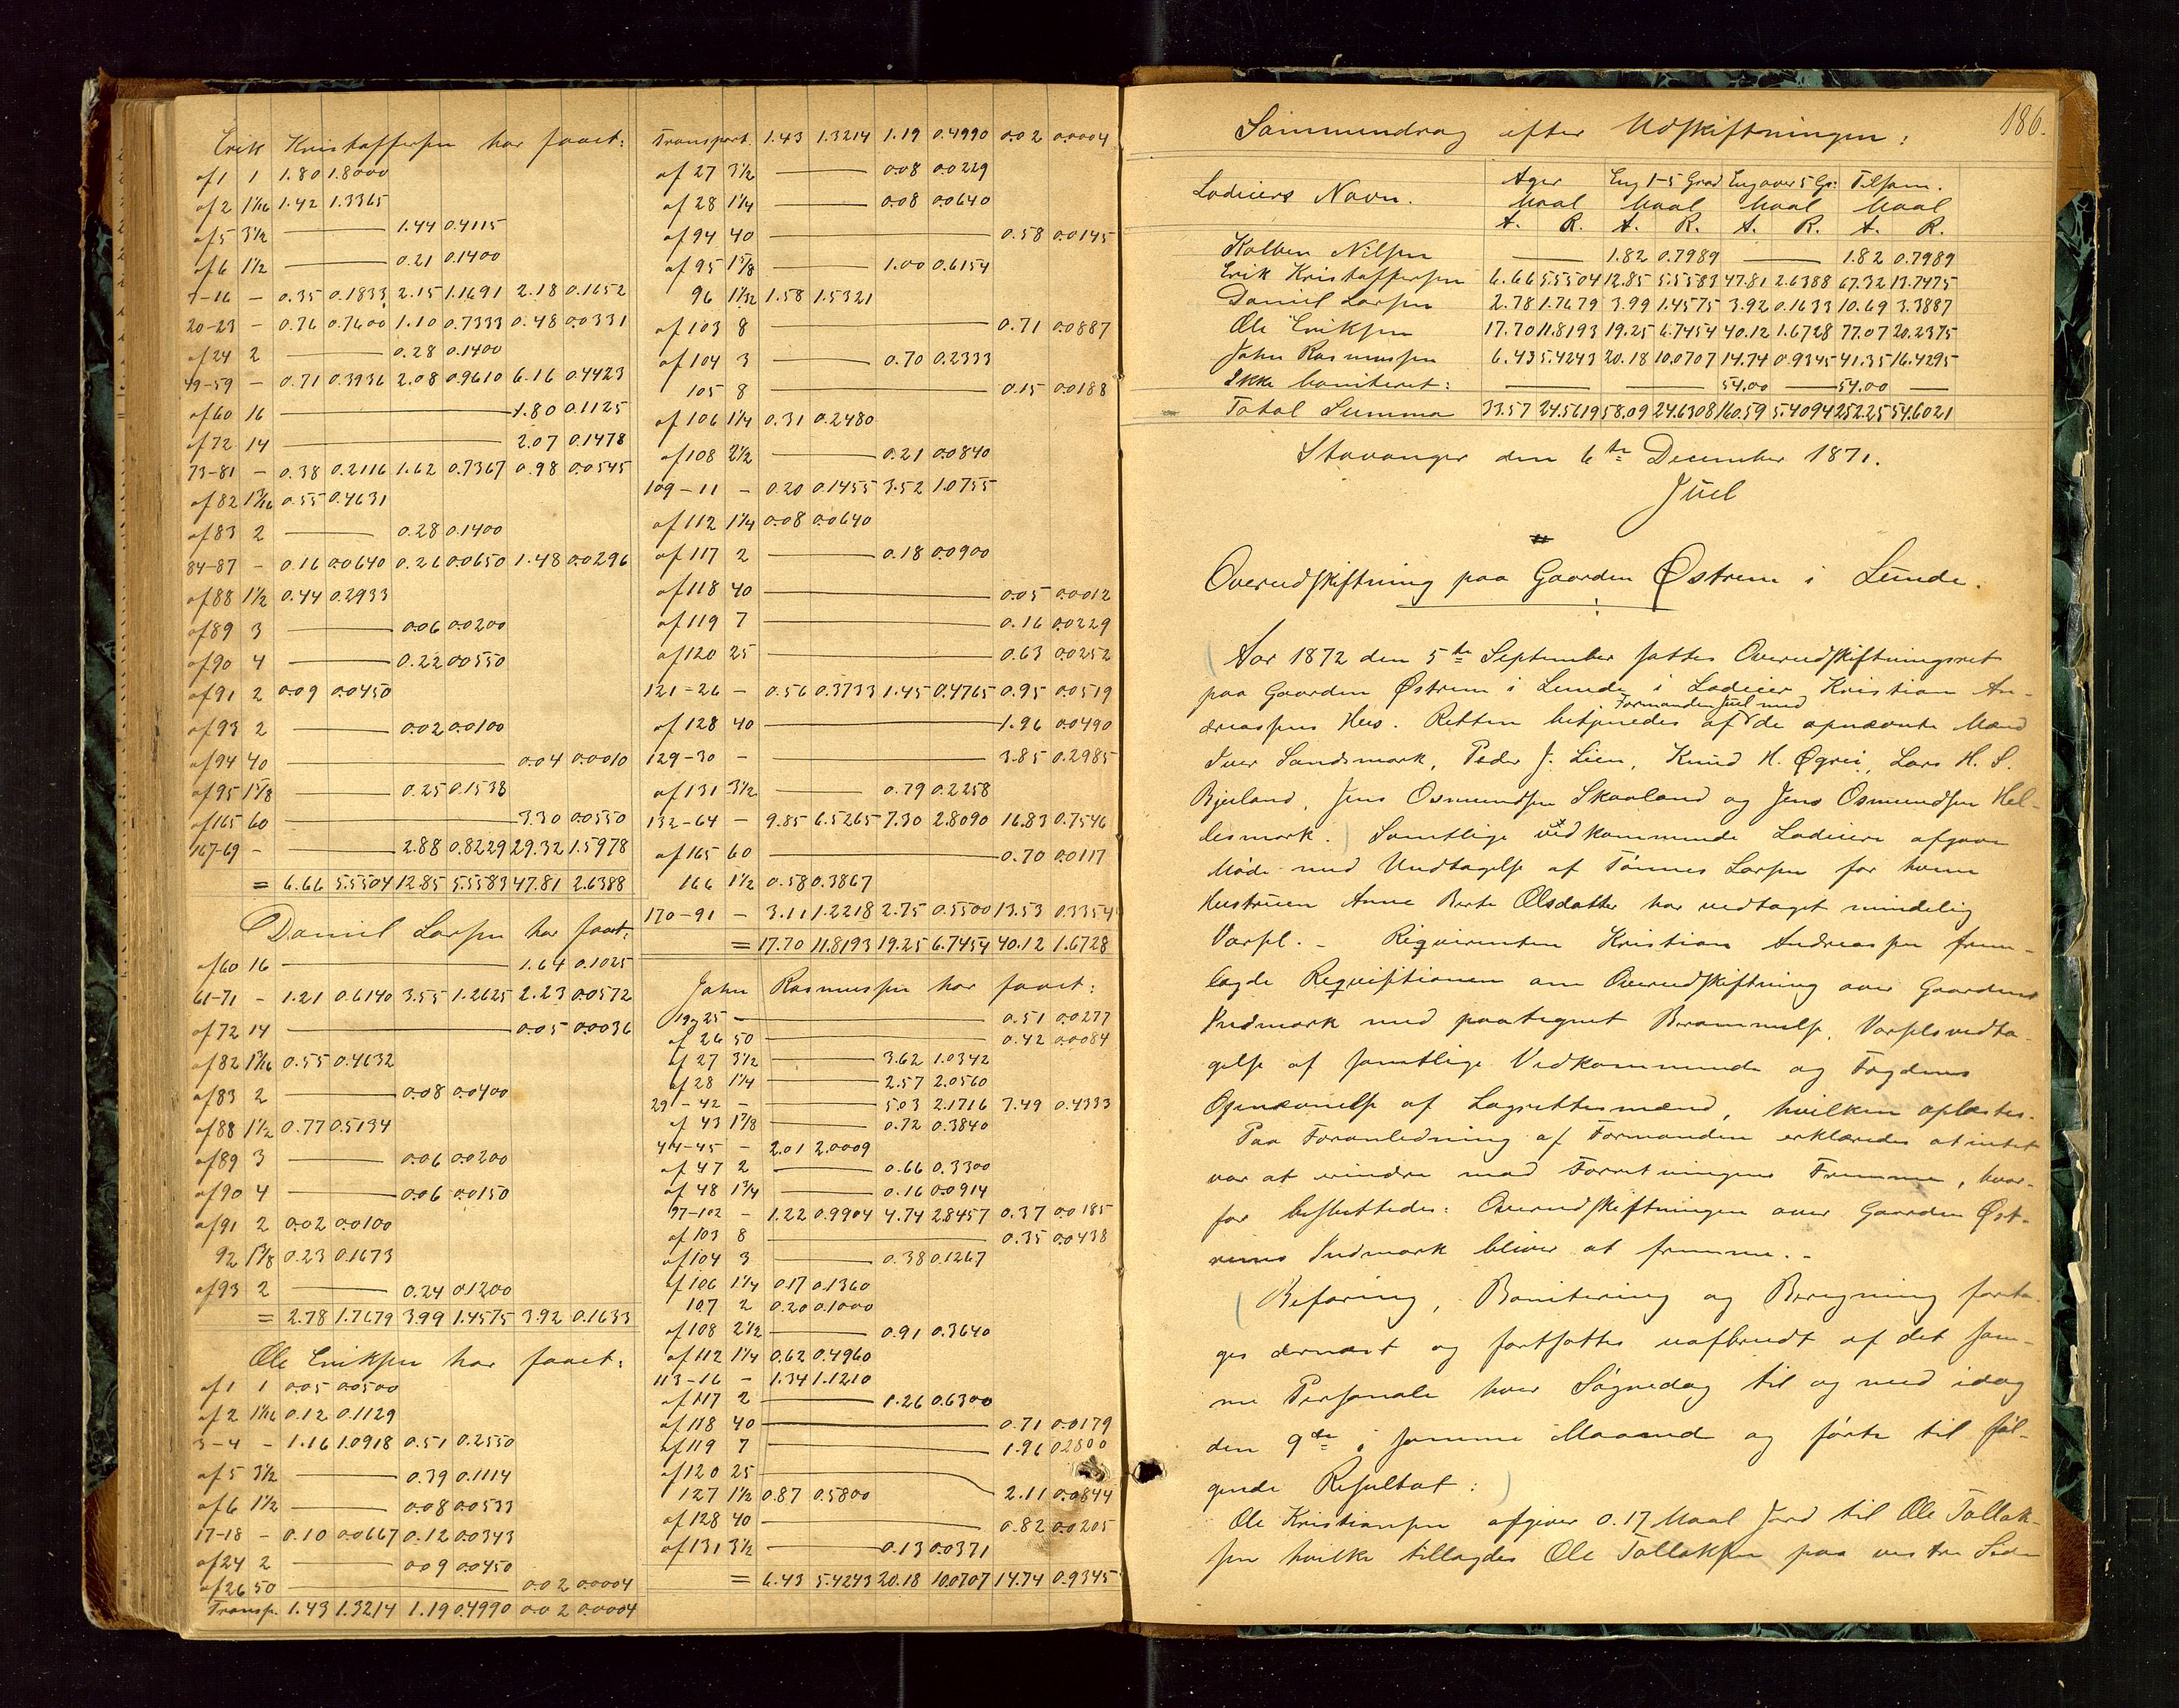 Erik Kristoffersen har faaet:
af 1 1 1.80 1.8000
af 2 1 1/16 1.42 1.3365
af 5 3 1/2 1.44 0.4115
af 6 1 1/2 0.21 0.1400
7-16 - 0.35 0.1833 2.15 1.1691 2.18 0.1652
20-23 - 0.76 0.7600 1.10 0.7333 0.48 0.0331
af 24 2 0.28 0.1400
49-59 - 0.71 0.3936 2.08 0.9610 6.16 0.4423
af 60 16 1.80 0.1125
af 72 14 2.07 0.1478
73-81 - 0.38 0.2116 1.62 0.7367 0.98 0.0545
af 82 1 3/16 0.55 0.4631
af 83 2 0.28 0.1400
84-87 - 0.16 0.0640 0.26 0.0650 1.48 0.0296
af 88 1 1/2 0.44 0.2933
af 89 3 0.06 0.0200
af 90 4 0.22 0.0550
af 91 2 0.09 0.0450
af 93 2 0.02 0.0100
af 94 40 0.04 0.0010
af 95 1 5/8 0.25 0.1538
af 165 60 3.30 0.0550
167-69 - 2.88 0.8229 29.32 1.5978
= 6.66 5.5504 12.85 5.5583 47.81 2.6388
Daniel Larsen har faaet:
af 60 16 1.64 0.1025
61-71 - 1.21 0.6140 3.55 1.2625 2.23 0.0572
af 72 14 0.05 0.0036
af 82 1 3/16 0.55 0.4632
af 83 2 0.08 0.0400
af 88 1 1/2 0.77 0.5134
af 89 3 0.06 0.0200
af 90 4 0.06 0.0150
af 91 2 0.02 0.0100
92 1 3/8 0.23 0.1673
af 93 2 0.24 0.1200
= 2.78 1.7679 3.99 1.4575 3.92 0.1633
Ole Eriksen har faaet:
af 1 1 0.05 0.0500
af 2 1 1/16 0.12 0.1129
3-4 - 1.16 1.0918 0.51 0.2550
af 5 3 1/2 0.39 0.1114
af 6 1 1/2 0.08 0.0533
17-18 - 0.10 0.0667 0.12 0.0343
af 24 2 0.09 0.0450
af 26 50 0.02 0.0004
Transp. 1.43 1.3214 1.19 0.4990 0.02 0.0004
Transport. 1.43 1.3214 1.19 0.4990 0.02 0.0004
af 27 3 1/2 0.08 0.0229
af 28 1 1/4 0.08 0.0640
af 94 40 0.58 0.0145
af 95 1 5/8 1.00 0.6154
96 1 1/32 1.58 1.5321
af 103 8 0.71 0.0887
af 104 3 0.70 0.2333
105 8 0.15 0.0188
af 106 1 1/4 0.31 0.2480
af 108 2 1/2 0.21 0.0840
109-11 - 0.20 0.1455 3.52 1.0755
af 112 1 1/4 0.08 0.0640
af 117 2 0.18 0.0900
af 118 40 0.05 0.0012
af 119 7 0.16 0.0229
af 120 25 0.63 0.0252
121-26 - 0.56 0.3733 1.45 0.4765 0.95 0.0519
af 128 40 1.96 0.0490
129-30 - 3.85 0.2985
af 131 3 1/2 0.79 0.2258
132-64 - 9.85 6.5265 7.30 2.8090 16.83 0.7546
af 165 60 0.70 0.0117
166 1 1/2 0.58 0.3867
170-91 - 3.11 1.2218 2.75 0.5500 13.53 0.3354
= 17.70 11.8193 19.25 6.7454 40.12 1.6728
John Rasmussen har faaet:
19-25 - 0.51 0.0277
af 26 50 0.42 0.0084
af 27 3 1/2 3.62 1.0342
af 28 1 1/4 2.57 2.0560
29-42 - 5.03 2.1716 7.49 0.4333
af 43 1 7/8 0.72 0.3840
44-45 - 2.01 2.0009
af 47 2 0.66 0.3300
af 48 1 3/4 0.16 0.0914
97-102 - 1.22 0.9904 4.74 2.8457 0.37 0.0185
af 103 8 0.35 0.0438
af 104 3 0.38 0.1267
af 106 1 1/4 0.17 0.1360
107 2 0.20 0.1000
af 108 2 1/2 0.91 0.3640
af 112 1 1/4 0.62 0.4960
113-16 - 1.34 1.1210
af 117 2 1.26 0.6300
af 118 40 0.71 0.0179
af 119 7 1.96 0.2800
af 120 25 2.11 0.0844
127 1 1/2 0.87 0.5800
af 128 40 0.82 0.0205
af 131 3 1/2 0.13 0.0371
= 6.43 5.4243 20.18 10.0707 14.74 0.9345
186.
Sammendrag efter Udskiftningen:
Lodeiers Navn. Ager Eng 1-5 Grad Eng over 5 Gr: Tilsam.
Maal Maal Maal Maal
A. R. A. R. A. R. A. R.
Kolben Nilsen 1.82 0.7989 1.82 0.7989
Erik Kristoffersen 6.66 5.5504 12.85 5.5583 47.81 2.6388 67.32 13.7475
Daniel Larsen 2.78 1.7679 3.99 1.4575 3.92 0.1633 10.69 3.3887
Ole Eriksen 17.70 11.8193 19.25 6.7454 40.12 1.6728 77.07 20.2375
John Rasmussen 6.43 5.4243 20.18 10.0707 14.74 0.9345 41.35 16.4295
Ikke boniteret: 54.00 54.00
Total Summa 33.57 24.5619 58.09 24.6308 160.59 5.4094 252.25 54.6021
Stavanger den 6te December 1871.
Juel
Overudskiftning paa Gaarden Østrem i Lunde.
Aar 1872 den 5te September sattes Overudskiftningsret
paa Gaarden Østrem i Lunde i Lodeier Kristian An-
dreassens Hus. Retten betjenedes af Formanden Juel med de opnævnte Mænd
Iver Sandsmark, Peder J. Lien, Knud H. Øgrei, Lars H. S.
Bjuland, Jens Osmundsen Skaaland og Jens Osmundsen Hel-
lesmark. Samtlige vedkommende Lodeiere afgave
Møde med Undtagelse af Tønnes Larsen for hvem
Hustruen Anne Berte Olsdatter har vedtaget mindelig
Varsel. - Reqvirenten Kristian Andreassen frem-
lagde Reqvisitionen om Overudskiftning over Gaardens
Indmark med paategnet Berammelse, Varselsvedta-
gelse af samtlige Vedkommende og Fogdens
Opnævnelse af Lagrettesmænd, hvilken oplæstes.
Paa Foranledning af Formanden erklæredes at intet
var at erindre mod Forretningens Fremme, hvor-
for besluttedes: Overudskiftningen over Gaarden Øst-
rems Indmark bliver at fremme. -
Befaring, Bonitering og Beregning foreta-
ges dernæst og fortsattes uafbrudt af det sam-
me Personale hver Søgnedag til og med idag
den 9de i samme Maaned og førte til føl-
gende Resultat:
Ole Kristiansen afgiver 0.17 Maal Jord til Ole Tollak-
sen hvilke tillagdes Ole Tollaksen paa vestre Side